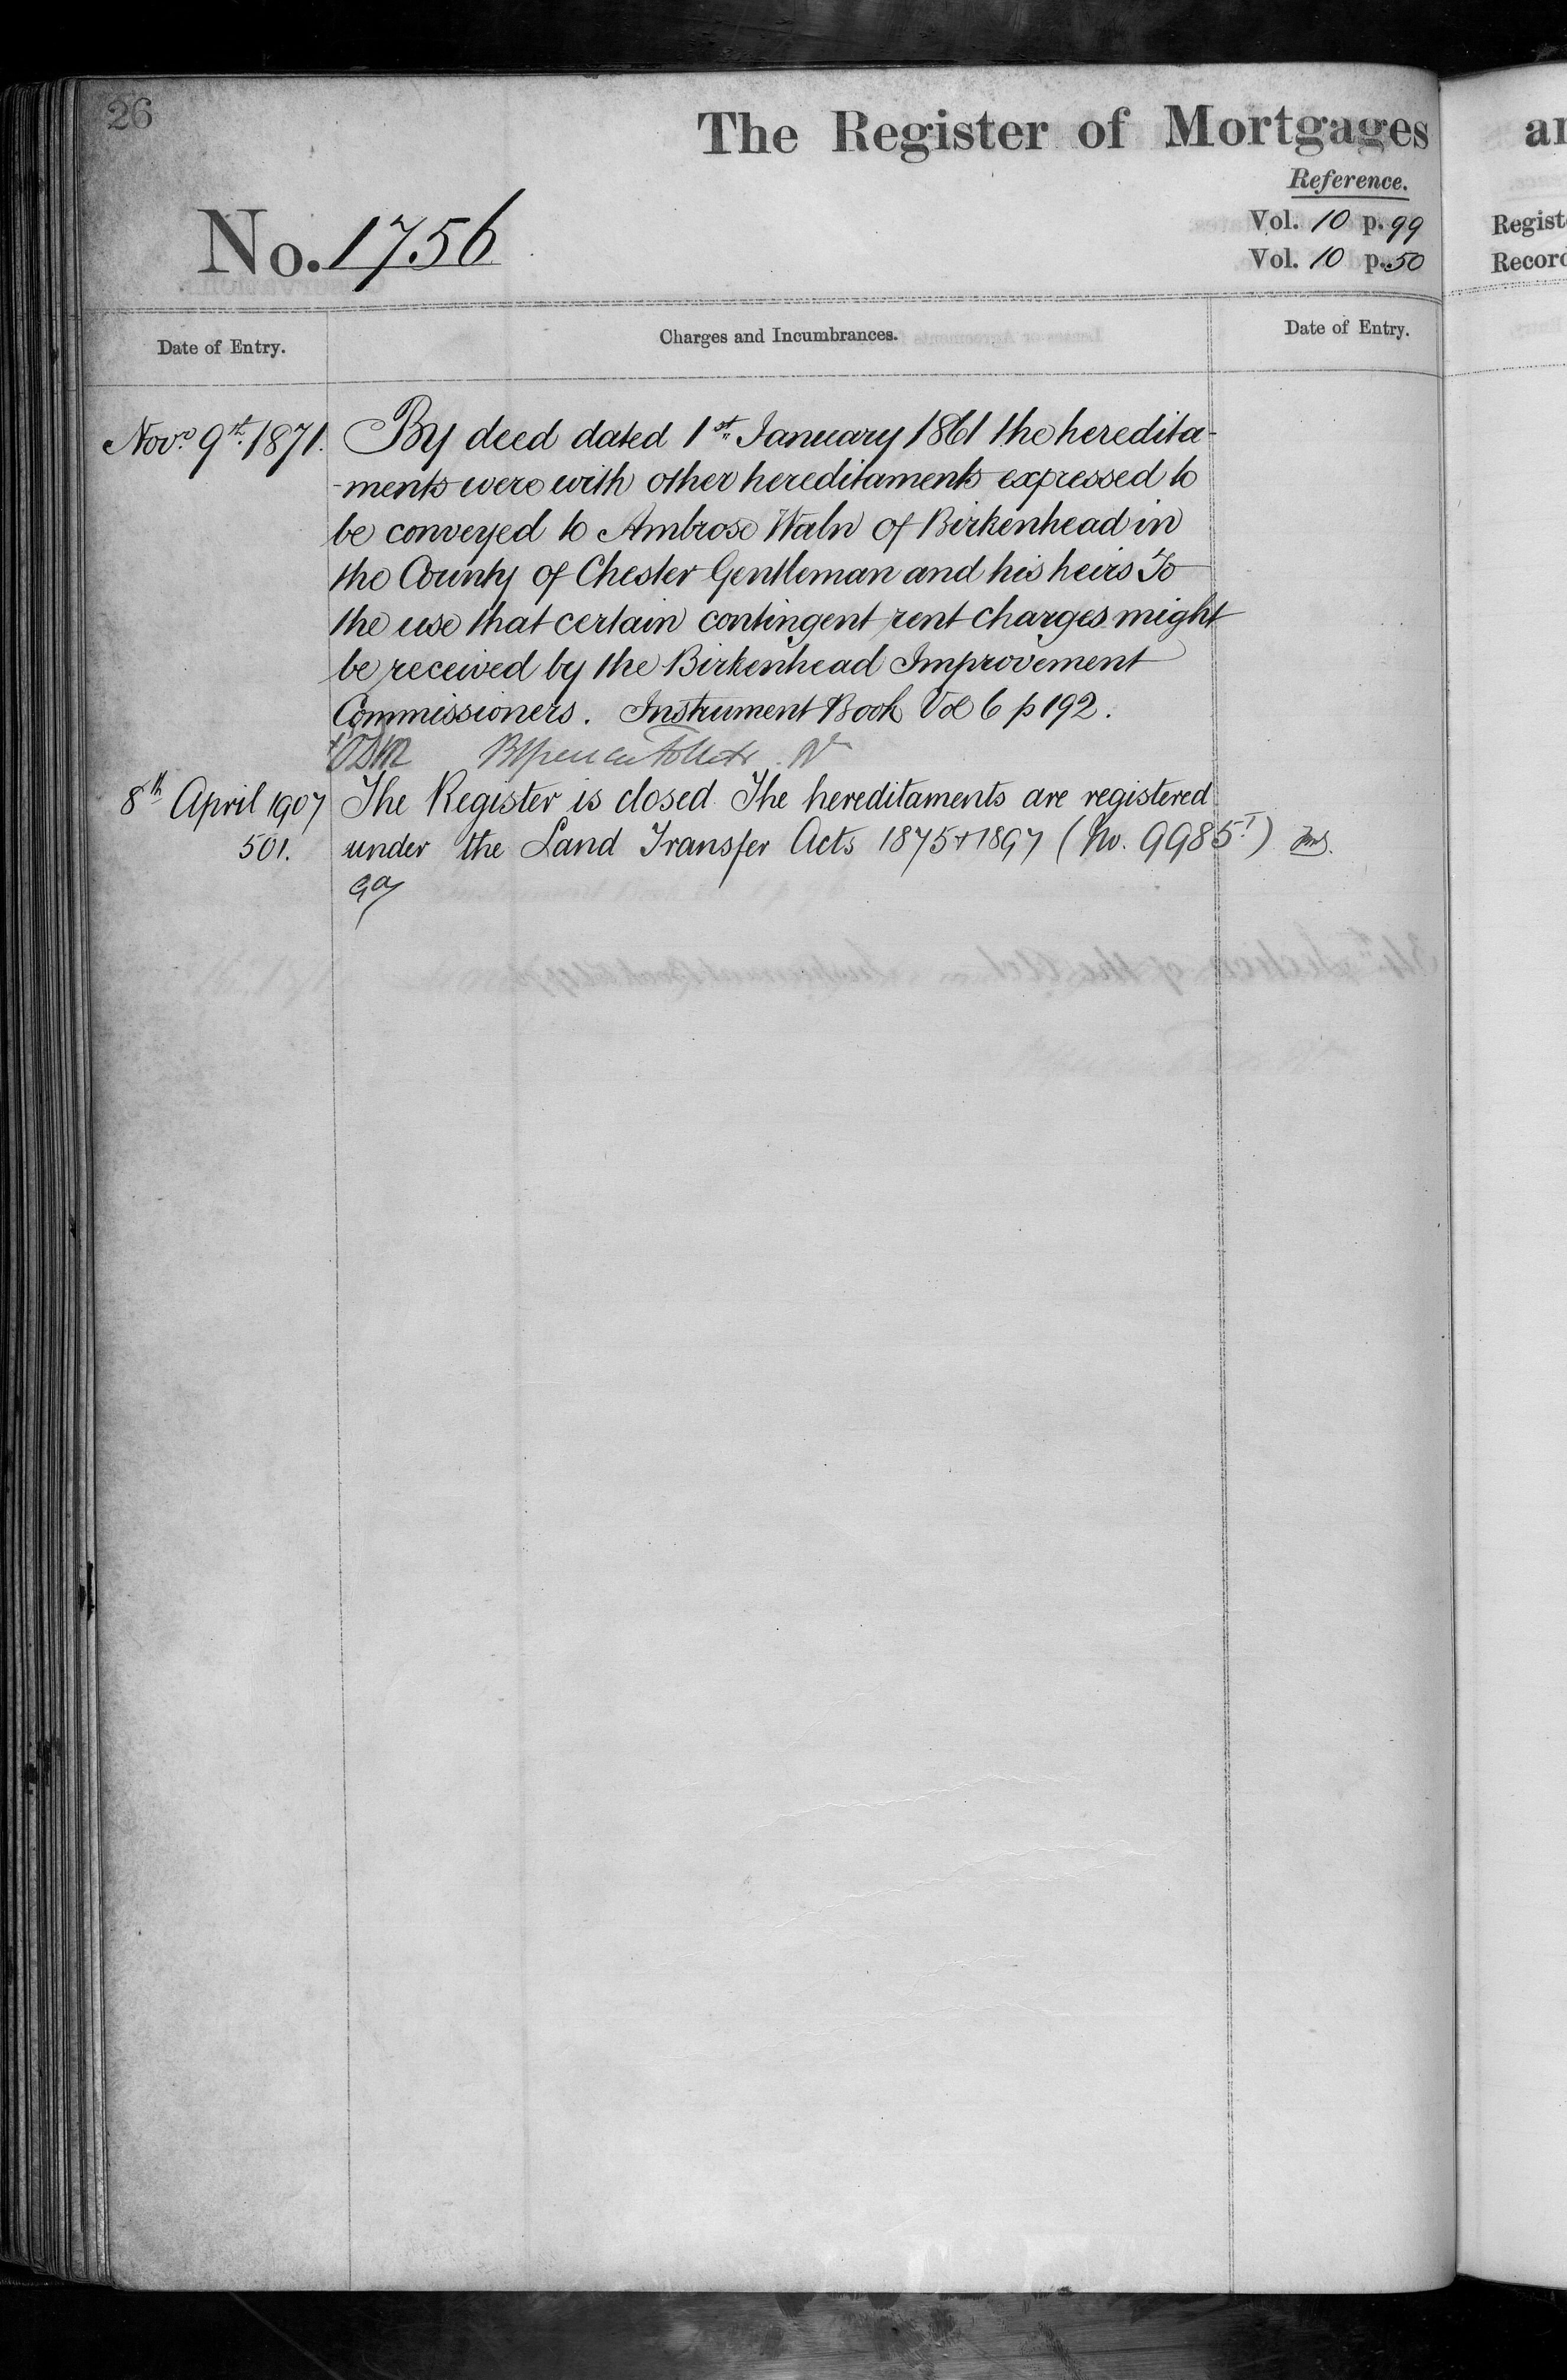 26
The Register of Mortgages
Reference.
No. 1756
Vol. 10 p. 99
Vol. 10 p. 50
Date of Entry.
Charges and Incumbrances.
Date of Entry.
Nov.r 9th. 1871. By deed dated 1st January 1861 the heredita-
-ments were with other hereditaments expressed to
be conveyed to Ambrose Waln of Birkenhead in
the County of Chester Gentleman and his heirs To
the use that certain contingent rent charges might
be received by the Birkenhead Improvement
Commissioners. Instrument Book Vol 6 p 192.
8th April 1907 The Register is closed. The hereditaments are registered
501. under the Land Transfer Acts 1875 + 1897 (No. 9985.I)
Regist
Record